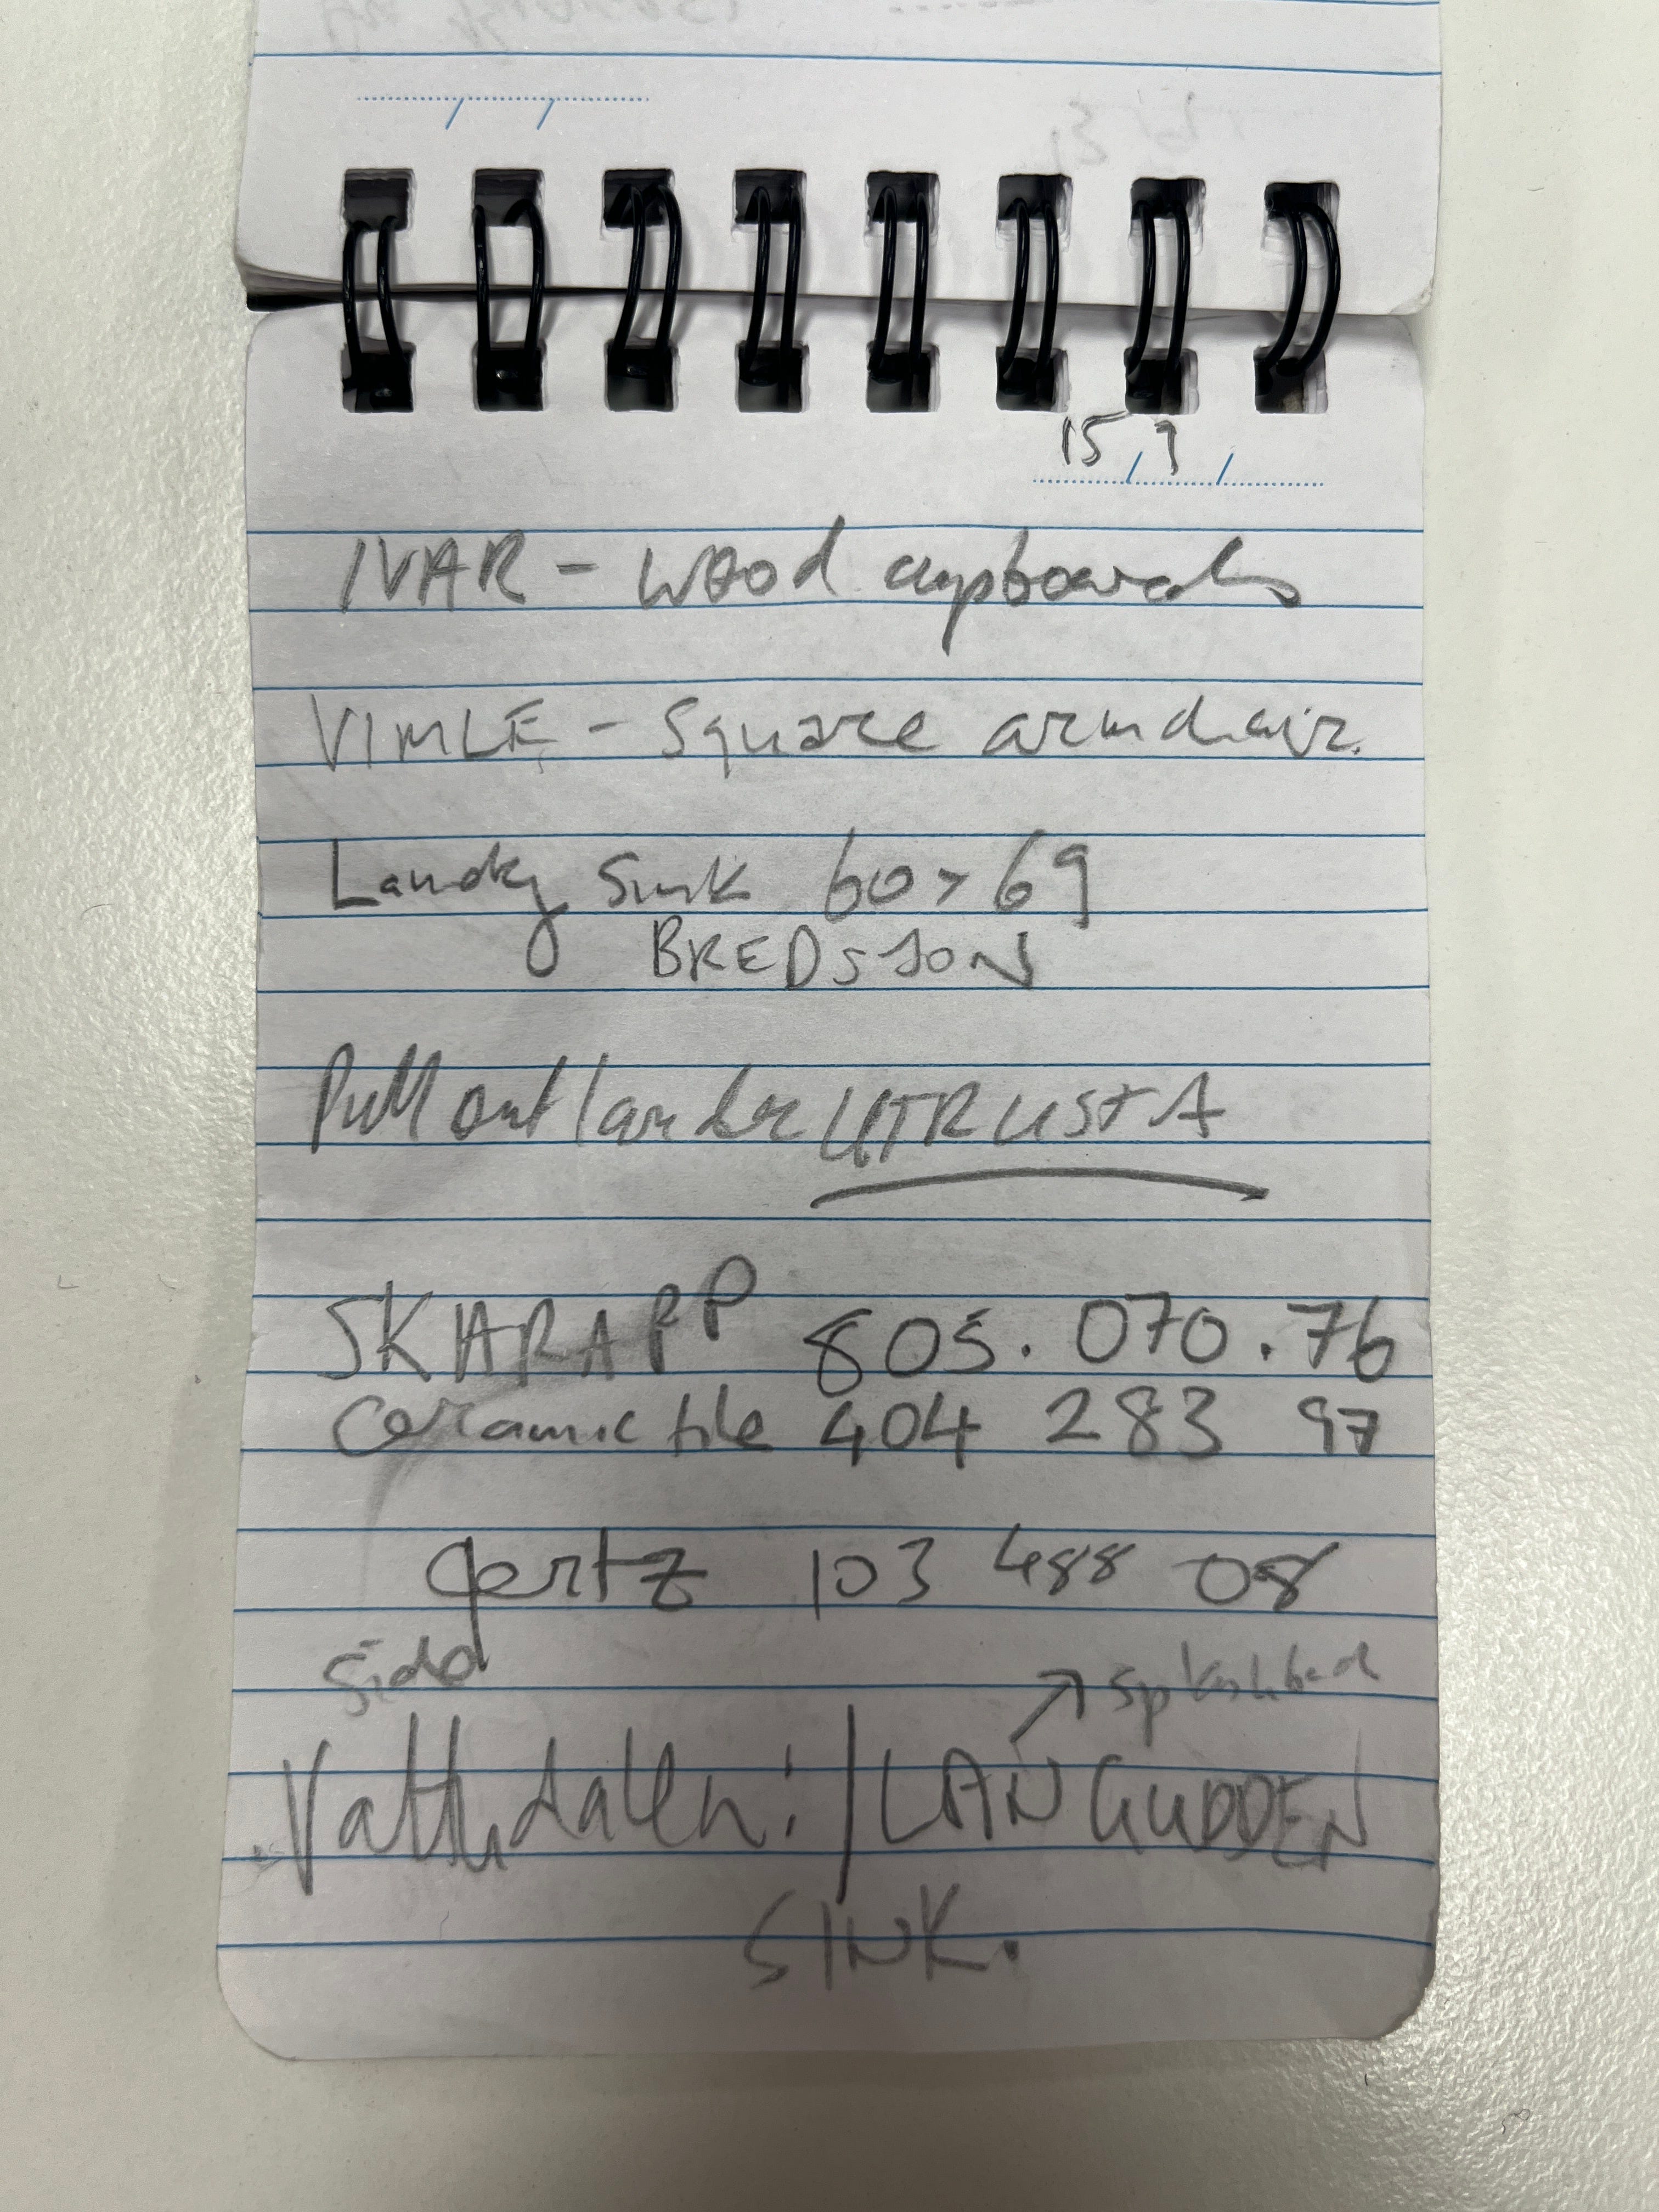 15/9
IVAR - wood cupboards
VIMLE - Square armchair.
Laundry Sink 60 x 69
BREDSJON
Pull out larder UTRUSTA
SKARAPP 805.070.76
Ceramic tile 404 283 97
qertz 103 488 08
Side
↗ Splashback
Vattudalen: / LANGUDDEN
SINK.